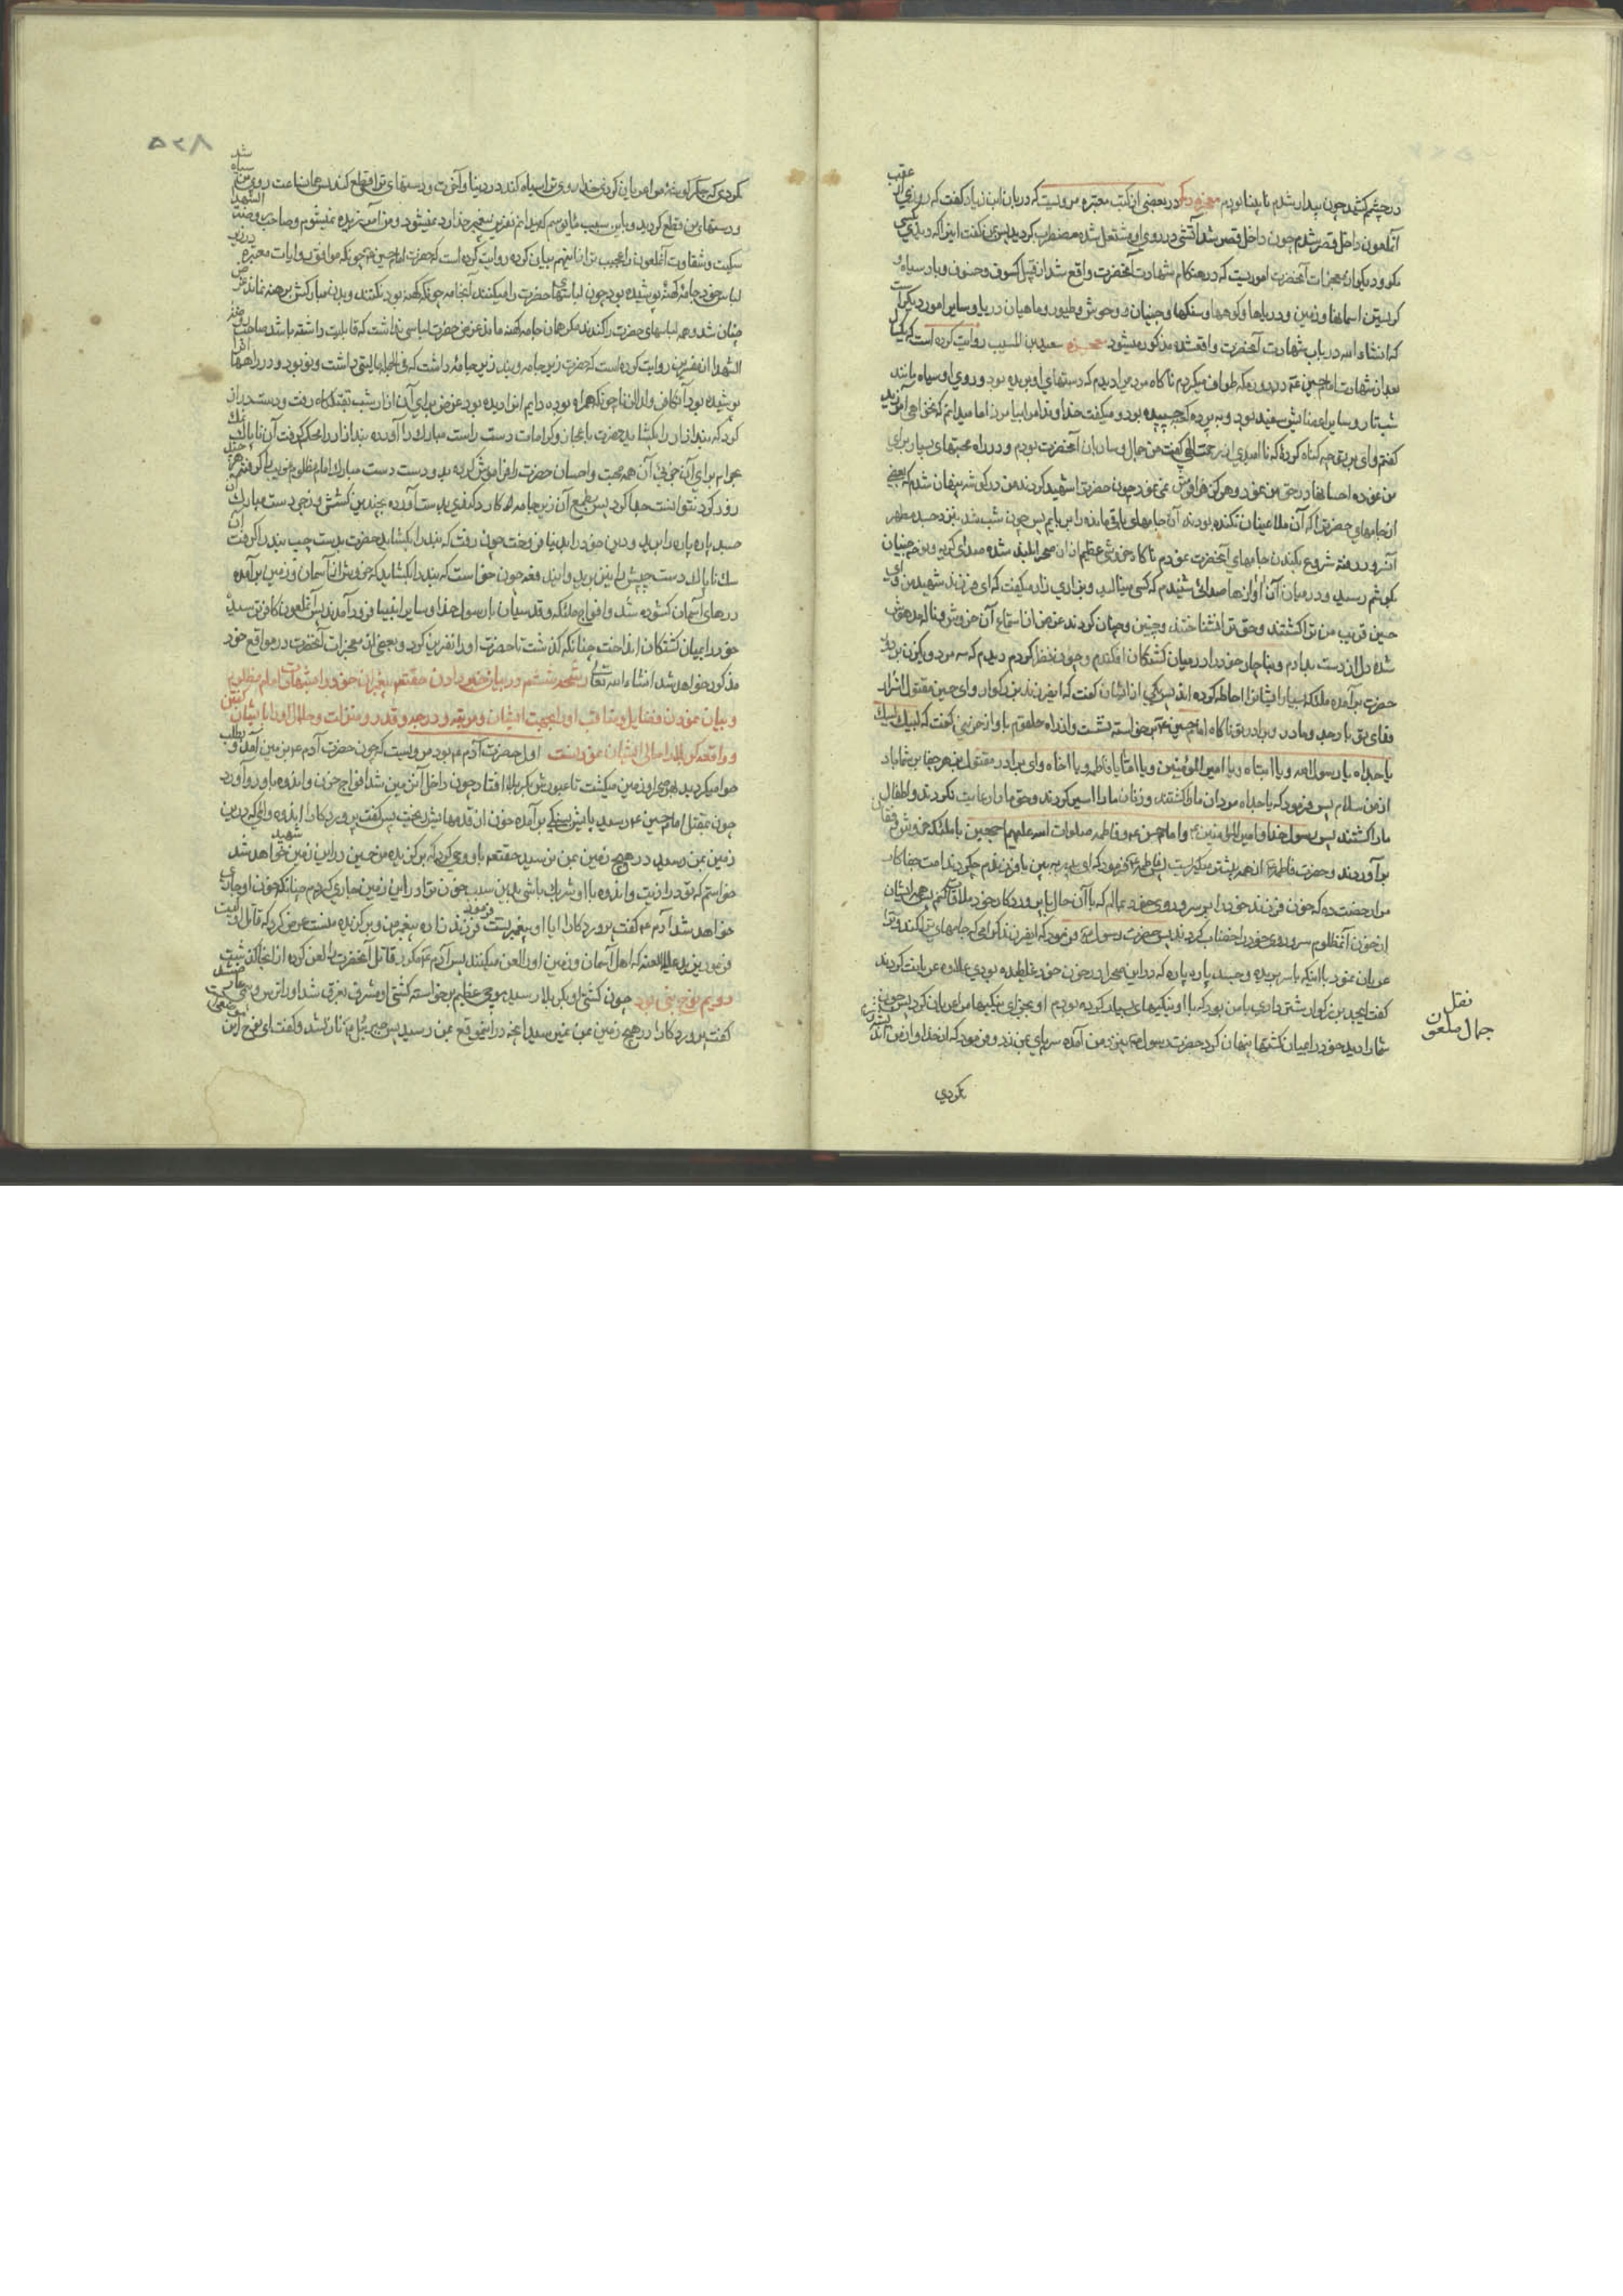 در چشم کشید چون بیدار شدم نابینا بودم معجزه دیگر در بعضی از کتب معتبره مرویست که دربان ابن زیاد گفت که روزی از عقب
آنملعون داخل قصر شدم چون داخل قصر شد آتشی در روی او مشتعل شده مضطرب گردید پس بمن گفت این را که دیدی بکسی
مگو و دیگر از معجزات آنحضرت اموریست که در هنگام شهادت آنحضرت واقع شد از قبیل کسوف و خسوف و باد سیاه و
گریستن آسمانها و زمین و دریاها و کوهها و سنگها و جنیان و وحوش و طیور و ماهیان دریا و سایر امور دیگر
که انشاء الله در باب شهادت آنحضرت واقعشده مذکور میشود معجزه سعید بن المسیب روایت کرده است که یکسال
بعد از شهادت امام حسین ع در دوره کعبه طواف میکردم ناگاه مردی را دیدم که دستهای او بریده بود و روی او سیاه مانند
شب تار و سایر اعضایش سفید بود و به پرده کعبه چسپیده بود و میگفت خداوندا مرا بیامرز اما میدانم که نخواهی آمرزید
گفتم وای بر تو چه گناه کردهٔ که ناامیدی از رحمت الهی گفت من جمال و ساربان آنحضرت بودم و در راه محبتهای بسیار برای
من نموده احسانها در حق من نمود و هرگز فراموش نمی نمود چون حضرترا شهید کردند من در گوشه پنهان شدم که بعضی
از جامهای حضرترا که آن ملاعینان نکنده بودند آن جامهای باقی مانده را بربایم پس چون شب شد بنزد جسد مطهر
آنسرور رفته شروع بکندن جامهای آنحضرت نمودم ناگاه خروشی عظیم از آن صحرا بلند شده صدای گریه و نوحه جنیان
بگوشم رسید و در میان آن آوازها صدائی شنیدم که کسی مینالید و بزاری زار میگفت که ای فرزند شهید من و ای
حسین غریب من ترا کشتند و حق ترا نشناختند و چنین و چنان کردند غرض من از استماع آن خروش و ناله مدهوش
شده دل از دست بدادم و بناچار خود را در میان کشتگان افکندم و چون نظر کردم دیدم که سه مرد و یکزن بر دور
حضرت برآمده ملائکه بسیار ایشانرا احاطه کرده اند پس یکی از ایشان گفت که ایفرزند بزرگوار و ای حسین مقتول اشرار
فدای تو باد جد و مادر و برادر تو ناگاه امام حسین ع برخواسته نشست و از راه حلقوم باواز حزینی گفت که لبیک لبیک
یا جداه یا رسول الله و یا ابتاه و یا امیر المؤمنین و یا اماه یا فاطمه و یا اخاه و ای برادر مقتول بزهر جفا بر شما باد
از من سلام پس فرمود که یا جداه مردان ما را کشتند و زنان ما را اسیر کردند و حق ما را رعایت نکردند و اطفال
ما را کشتند پس رسول خدا و امیر المؤمنین ع و امام حسن ع و فاطمه صلوات الله علیهم اجمعین با ملائکه خروش و فغان
برآوردند و حضرت فاطمه ع از همه بیشتر میگریست پس فاطمه ع فرمود که ای پدر ببین با فرزندم چه کردند امت جفا کار
مرا رخصت ده که خون فرزند خود را بر سر و روی خود بمالم که با آن حال با پروردگار خود ملاقات کنم پس همه ایشان
از خون آنمظلوم سر و روی خود را خضاب کردند پس حضرت رسول ص فرمود که ایفرزند گرامی که جامهای ترا کند و ترا
عریان نمود با اینکه با سر بریده و جسد پاره پاره که در این صحرا در خون خود غلطیده بودی علاوه عریانت کردند
گفت ایجد بزرگوار شترداری با من بود که با او نیکیهای بسیار کرده بودم او بجزای نیکیها مرا عریان کرد پس چون
شما را دید خود را میان کشتها پنهان کرد حضرت رسول ص بنزد من آمده سر پای بمن زد و فرمود که از خدا و از من آزرم
نقل
جمال ملعون
نکردی
۵۲۸
نکردی که جگر گوشهٔ مرا عریان کردی خدا روی ترا سیاه کند در دنیا و آخرت و دستهای ترا قطع کند پس همان ساعت روی من سیاه شد
و دستهای من قطع گردید و باین سبب مأیوسم که میدانم نفرین پیغمبر خدا رد نمیشود و من آمرزیده نمیشوم و صاحب روضة الشهدا
سکیت و شقاوت آنملعون را عجیب تر از اینهم بیان کرده روایت کرده است که حضرت امام حسین ع چونکه موافق روایات معتبره در زیر
لباس خود جامهٔ کهنهٔ پوشیده بود چون لباسهای حضرت را میکندند آنجامه چونکه کهنه بود نکنند و بدن مبارکش برهنه نماند غرض
چنان شد و همه لباسهای حضرت را کندند مگر همان جامه کهنه ماند غرض حضرت لباسی نداشت که قابلیت داشته باشد صاحب روضة
الشهدا از نفرین روایت کرده است که حضرت زیر جامه و بند زیر جامهٔ داشت که فی الجمله مالیتی داشت و نو بود و در راهها آنرا
پوشیده بود آن کافر ولد الزنا چونکه همراه بوده دایم آنرا دیده بود غرض برای آن ازار شب بقتلگاه رفت و دست دراز
کرد که بند ازار را بکشاید حضرت باعجاز و کرامات دست راست مبارک را آورده بند ازار را محکم گرفت آن ناپاک نمک
بحرام برای آن جزئی آن همه محبت و احسان حضرت را فراموش کرده بدو دست دست مبارک امام مظلوم غریب را گرفته هر چند
زور کرد نتوانست جدا کرد پس بطمع آن زیرجامه کارد کندی بدست آورده بچندین کشش و زجر دست مبارک آن
جسد پاره پاره را برید و دین خود را بدنیا فروخت چون رفت که بند را بکشاید حضرت بدست چپ بند را گرفت آن
سگ ناپاک دست چپش را نیز برید و آنبد فعه چون خواست که بند را بکشاید که خروش از آسمان و زمین برآمده
درهای آسمان کشوده شد و افواج ملائکه و قدسیان با رسول خدا و سایر انبیا فرود آمدند پس آنملعون کافر ترسیده
خود را بمیان کشتگان انداخت چنانکه گذشت تا حضرت او را نفرین کرد و بعضی از معجزات آنحضرت در مواقع خود
مذکور خواهد شد انشاء الله تعالی رشحه ششم در بیان خبر دادن حقتعالی پیغمبران خود را از شهادت امام مظلوم
و بیان نمودن فضایل و مناقب او و محبت ایشان و مرتبه و درجه و قدر و منزلت و جلال او را بایشان گفتن
و واقعه کربلا را حالی ایشان نمودنست اول حضرت آدم ع بود مرویست که چون حضرت آدم ع بزمین آمد و بطلب
حوا میگردید بهر جای زمین میگشت تا عبورش بکربلا افتاد چون داخل آنزمین شد افواج حزن و اندوه باو رو آورد
چون بمقتل امام حسین ع رسید پایش بسنگی برآمده خون از قدمهایش بریخت پس گفت پروردگارا اندوه و المی که در این
زمین بمن رسید در هیچ زمین بمن نرسید حقتعالی باو وحی کرد که برگزیده من حسین در این زمین شهید خواهد شد
خواستم که تو در اذیت و اندوه با او شریک باشی بدین سبب خون ترا در این زمین جاری کردم چنانکه خون او جاری
خواهد شد آدم ع گفت پروردگارا آیا او پیغمبریست فرمود فرزند زاده پیغمبر من و برگزیده منست عرض کرد که قاتل او کیست
فرمود یزید علیه اللعنه که اهل آسمان و زمین او را لعن میکنند پس آدم ع مکرر قاتل آنحضرت را لعن کرده از آنجا گذشت
دویم نوح نبی بود چون کشتی او بکربلا رسید موجی عظیم برخواسته کشتی او مشرف بغرق شد او را ترس و بیم عارض شد
گفت پروردگارا در هیچ زمین بمن نمیرسید آنچه در اینموقع بمن رسید پس جبرئیل ع نازل شد و گفت ای نوح در این موضع